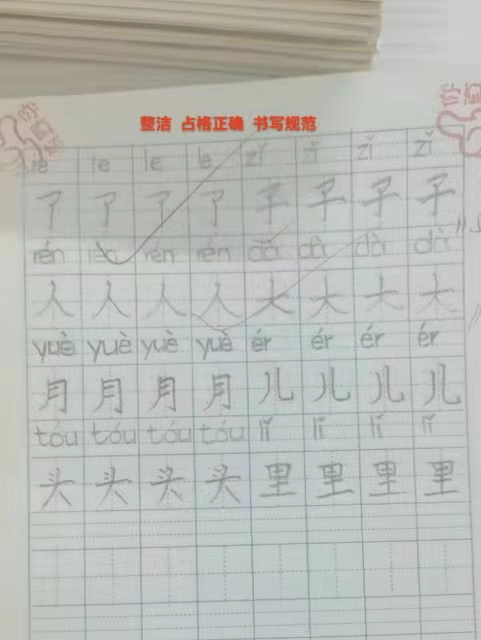 整洁 占格正确 书写规范
le le le le zǐ zǐ zǐ zǐ
了 了 了 了 子 子 子 子
rén rén rén rén dà dà dà dà
人 人 人 人 大 大 大 大
yuè yuè yuè yuè ér ér ér ér
月 月 月 月 儿 儿 儿 儿
tóu tóu tóu tóu lǐ lǐ lǐ lǐ
头 头 头 头 里 里 里 里